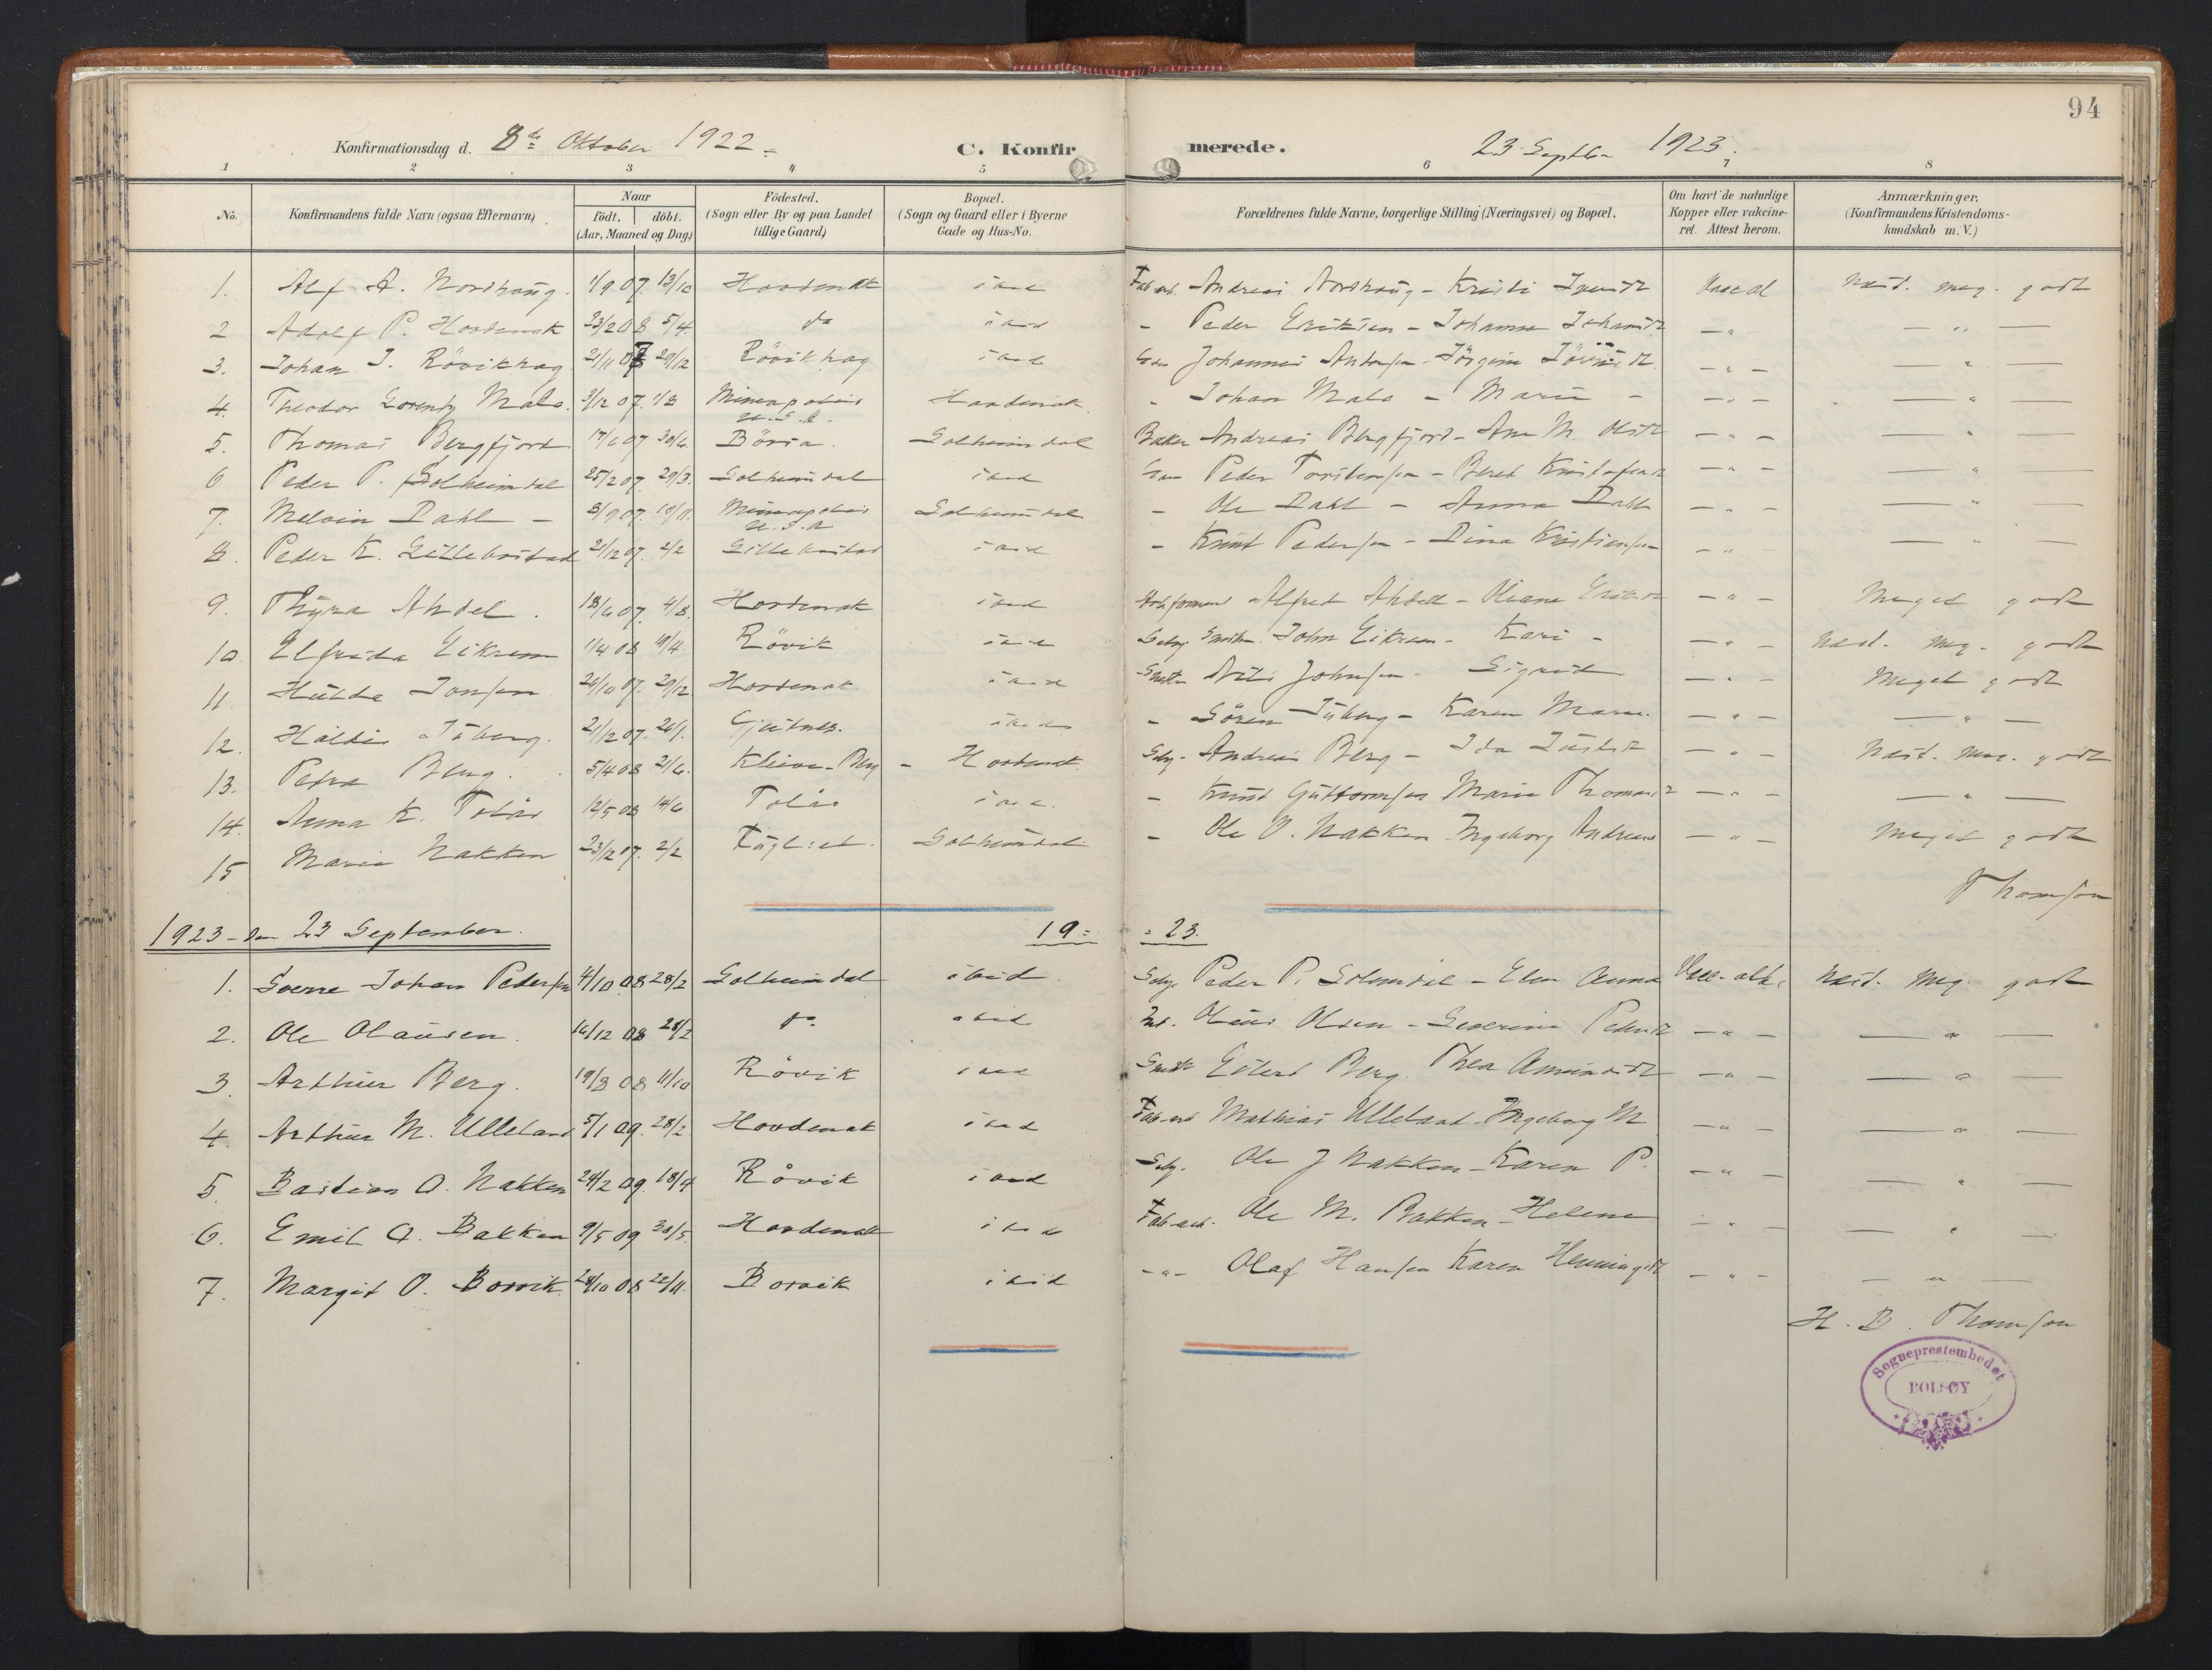 94
Konfirmationsdag d. 8de Oktober 1922. C. Konfirmerede. 23 Septbr 1923.
1 2 3 4 5 6 7 8
No. Konfirmandens fulde Navn (ogsaa Efternavn) Naar födt. döbt. (Aar, Maaned og Dag) Födested. (Sogn eller By og paa Landet tillige Gaard) Bopæl. (Sogn og Gaard eller i Byerne Gade og Hus-No. Forældrenes fulde Navne, borgerlige Stilling (Næringsvei) og Bopæl. Om havt de naturlige Kopper eller vakcineret. Attest herom. Anmærkninger. (Konfirmandens Kristendomskundskab m.V.)
1. Alf A. Norshaug 1/9 07 13/10 Hovdenak ibid Fab. arb. Andreas Norshaug - Kristi Næst. meg. godt
2 Adolf P. Hovdenak 23/2 08 5/4 do ibid - Peder Eriksen - Johanna - " - — " —
3. Johan J. Rövikhag 21/11 07 29/12 Rövikhag ibid Johannes - " - — " —
4. Theodor Lorentz Malo. 3/12 07 Minneapolis U.S.A. Hovdenak - Johan Malo - Marie - - " - — " —
5. Thomas Bergfjord 17/6 07 30/6 Bövra Solheimdal Baker Andreas Bergfjord - Ane M. Olsdt - " - — " —
6 Peder P. Solheimdal 25/2 07 29/3 Solheimdal ibid Peder - Beret - " - — " —
7. Melvin Dahl - 3/9 07 10/11 Minneapolis U.S.A Solheimdal - Ole Dahl - Anna Dahl - " - — " —
8. Peder K. Lillebostad 21/12 07. 2/2 Lillebostad ibid - Knut Pedersen - Dina Kristiansen - " — " —
9. Thyra Ahdel. 18/6 07. 4/8. Hovdenak ibid Alfred Ahdell - Oliane - " - Meget godt
10 Elfrida Eikrem 1/4 08 19/4. Rövik ibid John Eikrem - Kari - - " - Næst. meg. godt
11 Hulda Jonsen 20/10 07. 29/12 Hovdenak ibid Nils Johnsen - Sigrid - " - Meget godt
12. Haldis Tüberg. 21/12 07. Gjutnes. ibid - Sören Tüberg - Karen Marie. - " - — " —
13. Petra Berg. 5/4 08 21/6. Kleive - Berg - Hovdenak Selvj. Andreas Berg - Ida - " Næst. meg. godt
14. Anna K. Tolås 12/5 08 14/6 Tolås ibid. - Knut Guttormsen Marie Thomasdt - " - — " —
15 Marie Nakken 23/12 07. 2/2 Fuglset. Solheimdal. - Ole O. Nakken Ingeborg - " - Meget godt
Thomsen
1923 - den 23 September. 19 = = 23.
1. Sverre Johan Pedersen 4/10 08 28/2 Solheimdal ibid. Selvj. Peder P. Solemdal - Elen Anna Vacc. att. Næst. meg. godt
2. Ole Olausen. 16/12 08 28/2 do. ibid Olaus Olsen - Severine Pedersdt - " - — " —
3. Arthur Berg. 19/8 08 11/10 Rövik ibid Eilert Berg. Thea - " - — " —
4. Arthur M. Ulleland 5/1 09. 28/2 Hovdenak ibid Fab. arb Mathias Ulleland Ingeborg M - " - — " —
5. Bastian O. Nakken 24/2 09. 18/4 Rövik ibid Selvj. Ole J Nakken - Karen P. - " - — " —
6. Emil O. Bakken 9/5 09 30/5. Hovdenak ibid Fab. arb. Ole M. Bakken - Helene - " - — " —
7. Margit O. Borvik 28/10 08 22/11. Borvik ibid - " - Olaf Hansen Karen Henningsdt - " - — " —
H. B. Thomsen
Sogneprestembedet
BOLSØY